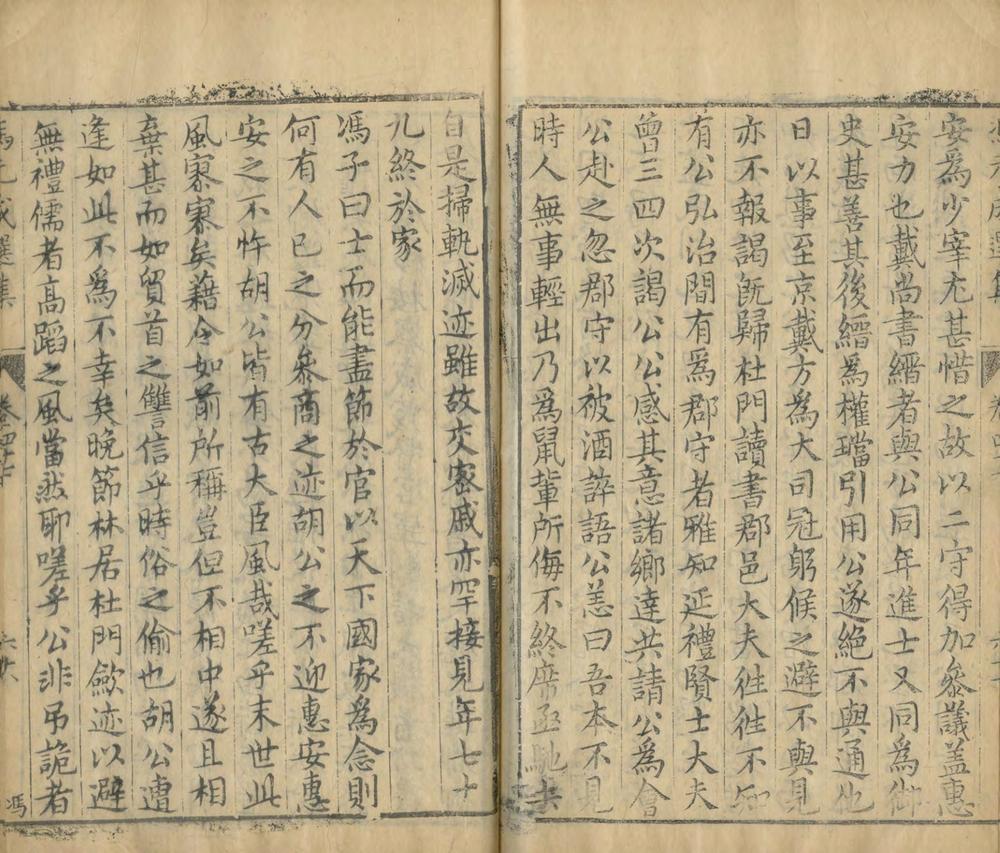 安為少宰尤甚惜之故以二守得加叅議盖惠
安力也戴尚書縉者與公同年進士又同為御
史甚善其後縉為權璫引用公遂絕不與通他
日以事至京戴方為大司冠躬候之避不與見
亦不報謁旣歸杜門讀書郡邑大夫徃徃不知
有公弘治間有為郡守者雅知延禮賢士大夫
曾三四次謁公公感其意諸鄉達共請公為會
公赴之忽郡守以被酒誶語公恙曰吾本不見
時人無事輕出乃為鼠軰所侮不終席亟馳去
自是掃軌滅迹雖故交宻戚亦罕接見年七十
九終於家
馮子曰士而能盡節於官以天下國家為念則
何有人已之分叅商之迹胡公之不迎惠安惠
安之不忤胡公皆有古大臣風哉嗟乎末世此
風寥寥矣藉令如前所稱豈但不相中遂且相
棄甚而如貿首之讐信乎時俗之偷也胡公遭
逢如此不為不幸矣晚節林居杜門歛迹以避
無禮儒者高蹈之風當然耶嗟乎公非吊詭者
馮元成選集
卷四十七
六十八
馮